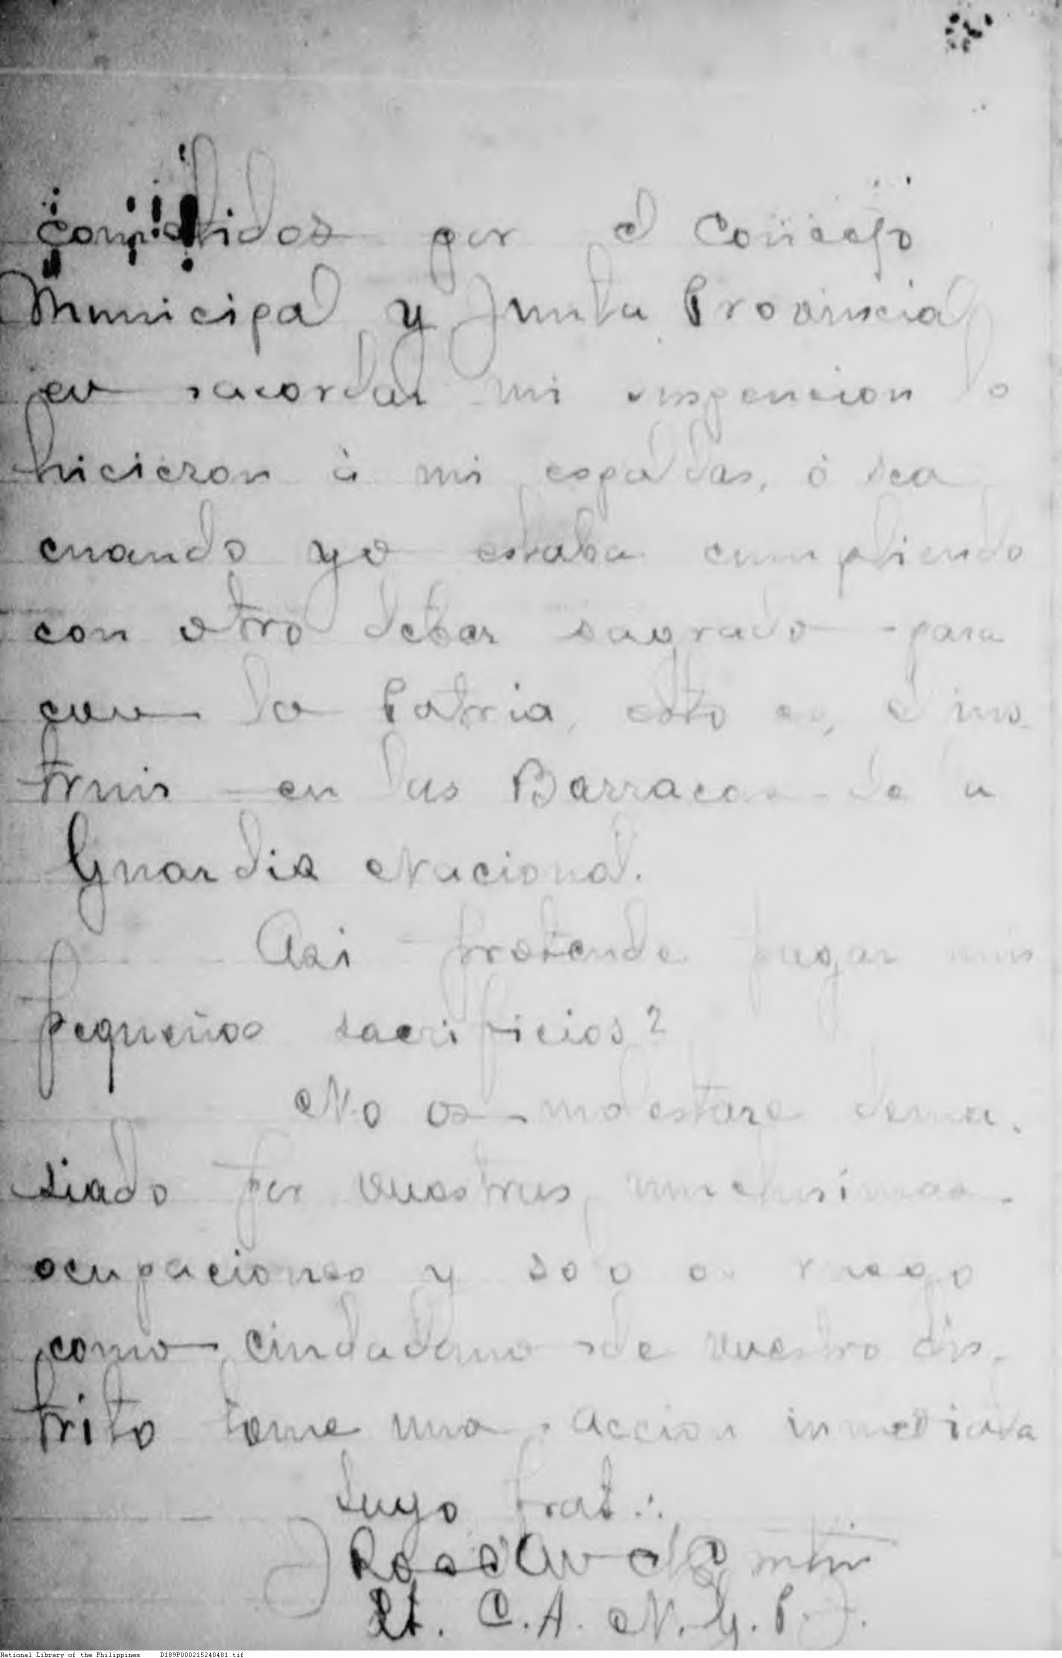 por el Concejo
Municipal y Junta Provincial
en acordar mi suspencion lo
hicieron á mi espaldas, ó sea
cuando yo estaba cumpliendo
con otro deber sagrado para
con la Patria, esto es,
en las Barracas de la
Guardia Nacional.
Asi pretende pagar mis
pequeños sacrificios?
No os molestare dema-
siado por vuestras muchisimas
ocupaciones y solo os ruego
como ciudadano de vuestro dis-
trito tome una accion inmediata
Suyo frat.:
Lt. C. A. N. G. P.
National Library of the Philippines D189P000215240481.tif